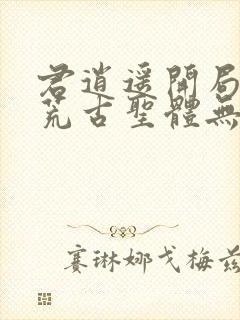 君逍遥開局
荒古聖體無
賽琳娜戈梅茲